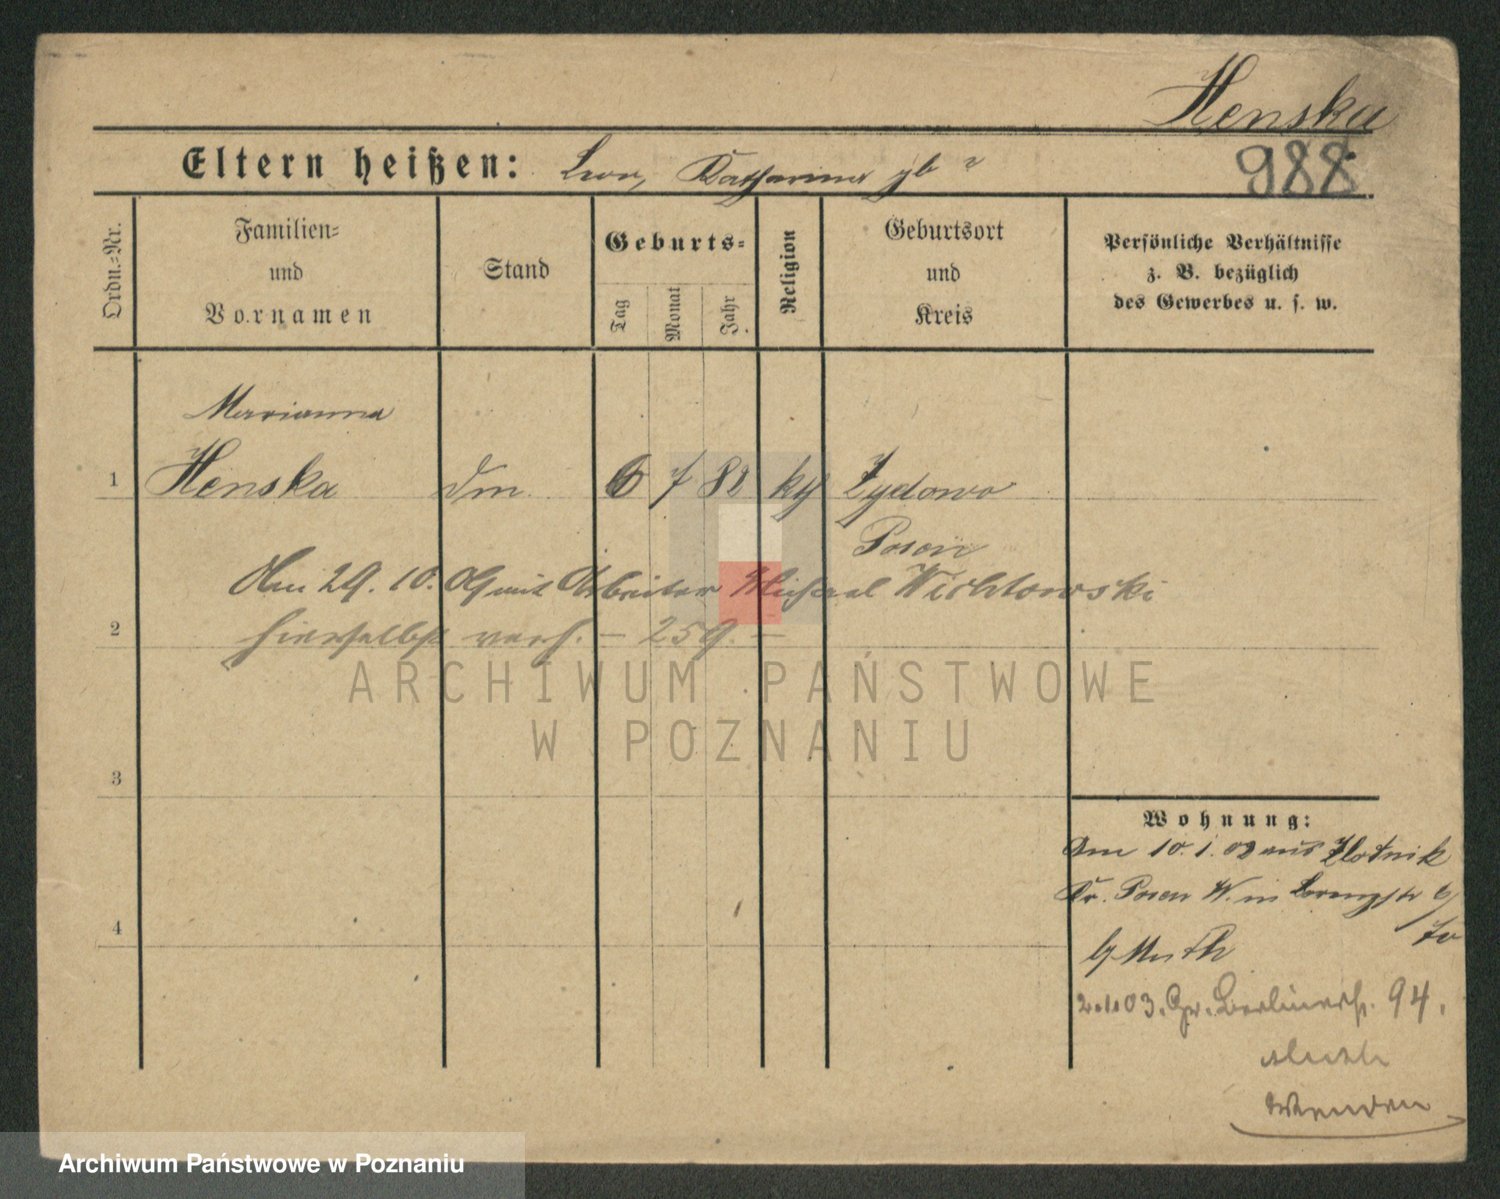 Henska
Eltern heißen: Leon, Katharina gb ?
988
Ordn.=Nr.
Familien=
und
Vornamen
Stand
Geburts=
Tag
Monat
Jahr
Religion
Geburtsort
und
Kreis
Persönliche Verhältnisse
z. B. bezüglich
des Gewerbes u. s. w.
Marianna
1 Henska 6 7 82 Zydowo
Posen
Am 29. 10. 09 mit Arbeiter Michael Wichtowski
2 hierselbst verh. – 259. –
3
4
Wohnung:
Am 10. 1. 02 aus Zlotnik
Kr. Posen W. in
b/ Muth
2.1.03. Gr. Berlinerstr. 94.
Wenden
ARCHIWUM PAŃSTWOWE
W POZNANIU
Archiwum Państwowe w Poznaniu